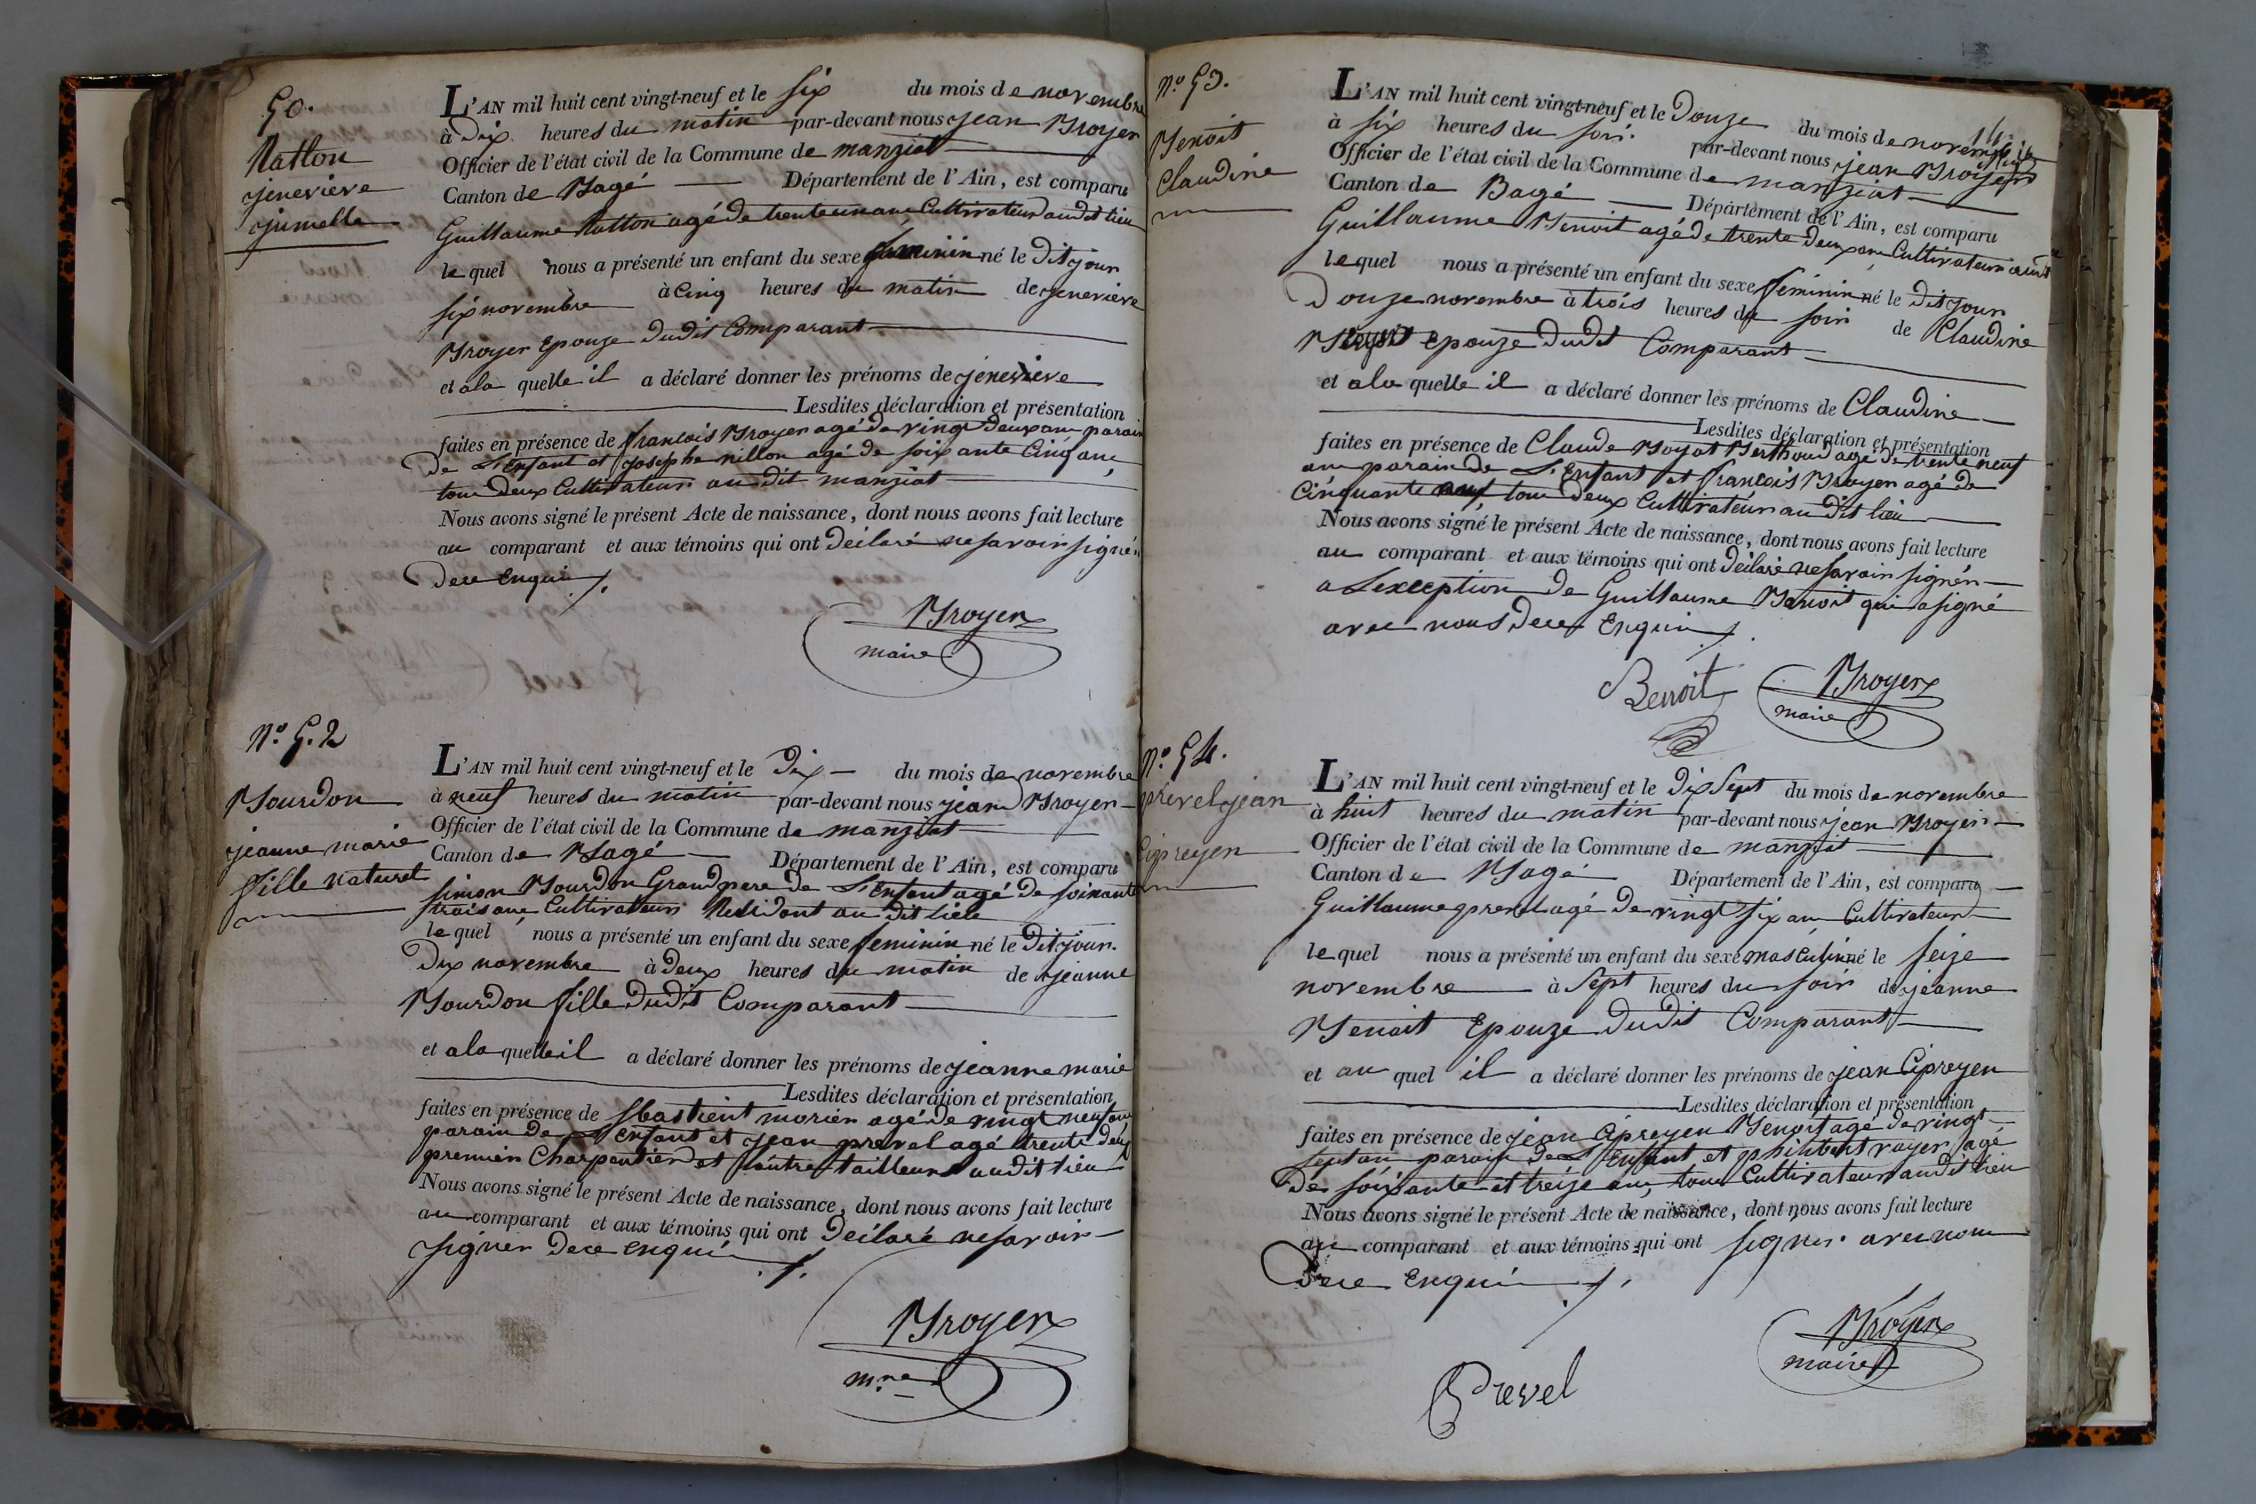 50.
Natton
jenevieve
jumelle
L'AN mil huit cent vingt-neuf et le six du mois de novembre
à Dix heures du matin par-devant nous jean Broyer
Officier de l'état civil de la Commune de manziat
Canton de Bagé Département de l'Ain, est comparu
Guillaume Natton agé de trente un ans Cultivateur audit lieu
lequel nous a présenté un enfant du sexe feminin né le Dit jour
six novembre à Cinq heures du matin de jenevieve
Broyer Epouze Dudit Comparant
et a la quelle il a déclaré donner les prénoms de jenevieve
Lesdites déclaration et présentation
faites en présence de francois Broyer agé de vingt deux ans parain
De L'Enfant et josephe nillon agé de soixante Cinq ans
tous Deux Cultivateurs au dit manziat
Nous avons signé le présent Acte de naissance, dont nous avons fait lecture
au comparant et aux témoins qui ont Déclaré ne savoir signér
De ce Enquis ./.
Broyer
maire
N.o 52
Bourdon
jeanne marie
fille naturel
L'AN mil huit cent vingt-neuf et le Dix du mois de novembre
à neuf heures du matin par-devant nous jean Broyer
Officier de l'état civil de la Commune de manziat
Canton de Bagé Département de l'Ain, est comparu
simon Bourdon Grand pere de L'Enfant agé de soixante
trois ans Cultivateur Residant au dit Lieu
lequel nous a présenté un enfant du sexe feminin né le Dit jour
Dix novembre à Deux heures du matin de jeanne
Bourdon fille Dudit Comparant
et a la quelle il a déclaré donner les prénoms de jeanne marie
Lesdites déclaration et présentation
faites en présence de sbastient morier agé de vingt neuf ans
parain De L'Enfant et jean prevel agé trente deux
premier Charpentier et l'autre tailleur audit lieu
Nous avons signé le présent Acte de naissance, dont nous avons fait lecture
au comparant et aux témoins qui ont Déclaré ne savoir
signer De ce enquis ./.
Broyer
m.re
N.o 53.
Benoit
Claudine
L'AN mil huit cent vingt-neuf et le Douze du mois de novembre
à six heures du soir. par-devant nous jean Broyer
Officier de l'état civil de la Commune de manziat
Canton de Bagé Département de l'Ain, est comparu
Guillaume Benoit agé de trente deux ans Cultivateur audit
lequel nous a présenté un enfant du sexe feminin né le Dit jour
Douze novembre à trois heures du soir de Claudine
epouze Dudit Comparant
et a la quelle il a déclaré donner les prénoms de Claudine
Lesdites déclaration et présentation
faites en présence de Claude Boyat Berthoud agé de trente neuf
ans parain de L'Enfant et francois Broyer agé de
Cinquante tous Deux Cultivateurs au Dit lieu
Nous avons signé le présent Acte de naissance, dont nous avons fait lecture
au comparant et aux témoins qui ont Déclaré ne savoir signér
a Lexception de Guillaume Benoit qui a signé
avec nous De ce Enquis ./.
Benoit
Broyer
maire
N.o 54.
prevel jean
Cipreyen
L'AN mil huit cent vingt-neuf et le Dix Sept du mois de novembre
à huit heures du matin par-devant nous jean Broyer
Officier de l'état civil de la Commune de manziat
Canton de Bagé Département de l'Ain, est comparu
Guillaume prevel agé De vingt six ans Cultivateur
lequel nous a présenté un enfant du sexe masculin né le seize
novembre à Sept heures du soir de jeanne
Benoit Epouze Dudit Comparant
et au quel il a déclaré donner les prénoms de jean Cipreyen
Lesdites déclaration et présentation
faites en présence de jean Cipreyen Benoit agé de vingt
sept ans parain De L'Enfant et philibert rayer agé
De soixante et treize ans, tous Cultivateurs audit lieu
Nous avons signé le présent Acte de naissance, dont nous avons fait lecture
au comparant et aux témoins qui ont signer avec nous
De ce Enquis ./.
Prevel
Broyer
maire